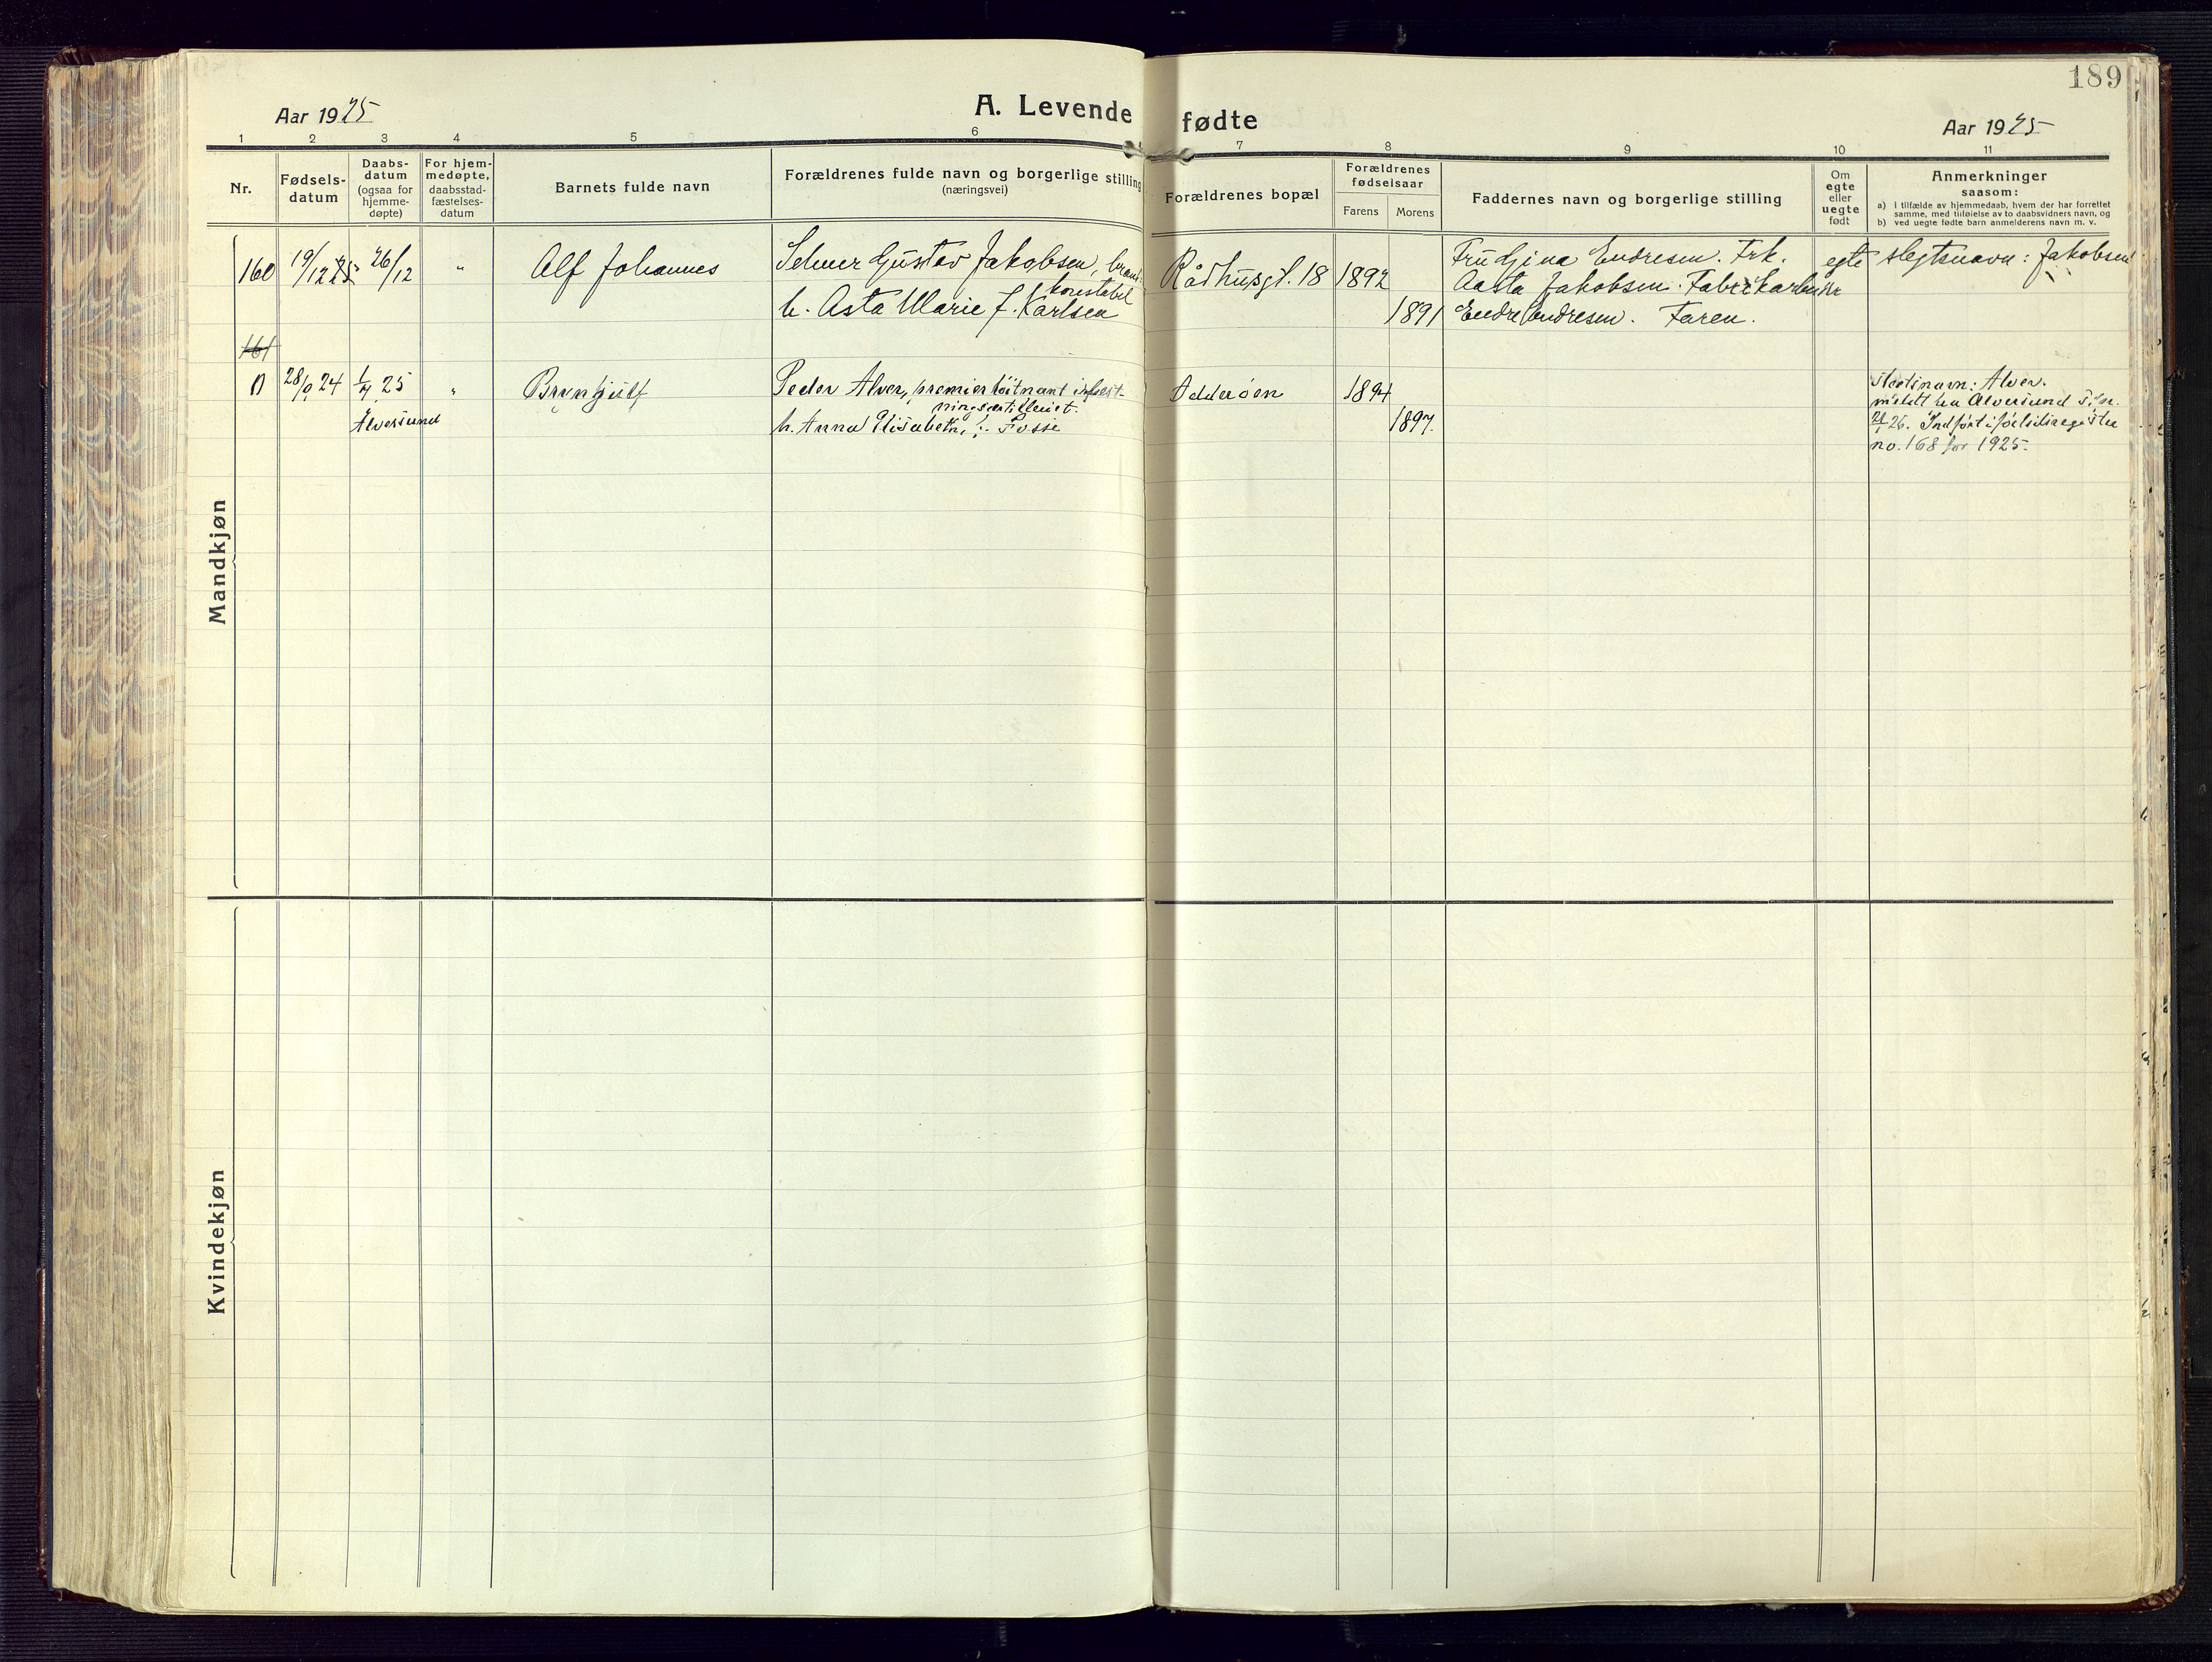 189
Aar 1925
A. Levende fødte
Aar 1925
1 2 3 4 5 6 7 8 9 10 11
Nr.
Fødsels-
datum
Daabs-
datum
(ogsaa for
hjemme-
døpte)
For hjem-
medøpte,
daabsstad-
fæstelses-
datum
Barnets fulde navn
Forældrenes fulde navn og borgerlige stilling
(næringsvei)
Forældrenes bopæl
Forældrenes
fødselsaar
Farens Morens
Faddernes navn og borgerlige stilling
Om
egte
eller
uegte
født
Anmerkninger
saasom:
a) I tilfælde av hjemmedaab, hvem der har forrettet
samme, med tilføielse av to daabsvidners navn, og
b) ved uegte fødte barn anmelderens navn m. v.
Mandkjøn
160 19/12 25 26/12 " Alf Johannes Selmer Gustav Jakobsen, brand- Rådhusgt. 18 1892 Fru Gina Endresen. Frk. egte slegtsnavn: Jakobsen
konstabel Aasta Jakobsen. Fabrikarbeider
h. Asta Marie f. Karlsen 1891 Endre Endresen. Faren.
161
0 28/9 24 1/4 25 " Brynhjulf Peder Alver, premierløitnant i fæst- Odderøen 1894 Slegtsnavn: Alver.
ningsartilleriet. meldt fra Alversund
Alversund h. Anna Elisabeth, f. Fosse 1897. 26. Indført i fødselsregistre
no. 168 for 1925.
Kvindekjøn